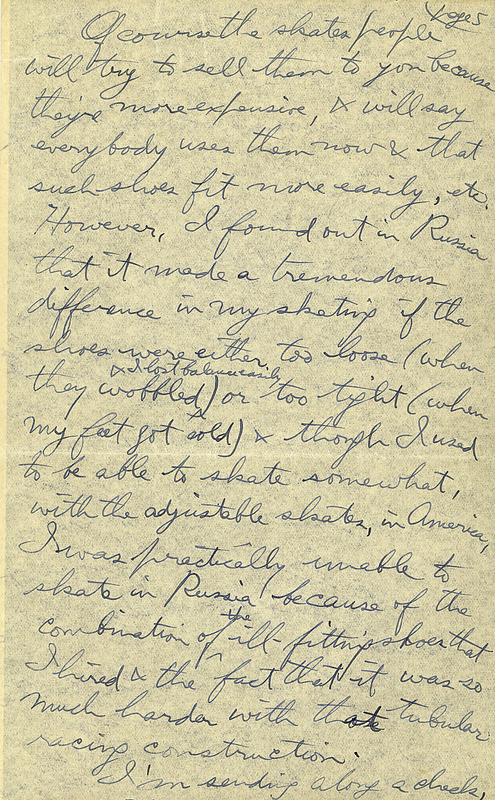 Page 5
Of course the skates people
will try to sell them to you because
they're more expensive, & will say
everybody uses them now & that
such shoes fit more easily, etc.
However, I found out in Russia
that it made a tremendous
difference in my skating if the
shoes were either too loose (when
& I lost balance easily
they wobbled) or too tight (when
my feet got cold) & though I used
to be able to skate somewhat,
with the adjustable skates, in America,
I was practically unable to
skate in Russia because of the
the
combination of ill-fitting shoes that
I hired & the fact that it was so
much harder with that tubular
racing construction.
I'm sending along a check,